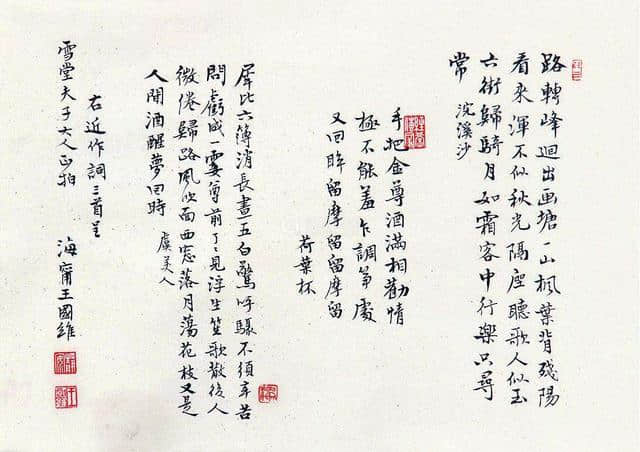 路轉峰迴出画塘一山楓葉背殘陽
看來渾不似秋光隔座聽歌人似玉
六街歸騎月如霜客中行樂只尋
常
浣溪沙
手把金尊酒滿相勸情
極不能羞乍調箏處
又回眸留摩留留摩留
荷葉杯
犀比六簿消長晝五白驚呼驟不須辛苦
問虧成一霎尊前了〻見浮生笙歌散後人
微倦歸路風吹面西窓落月蕩花枝又是
人間酒醒夢回時
虞美人
右近作詞三首呈
雪堂夫子大人正拍
海甯王國維